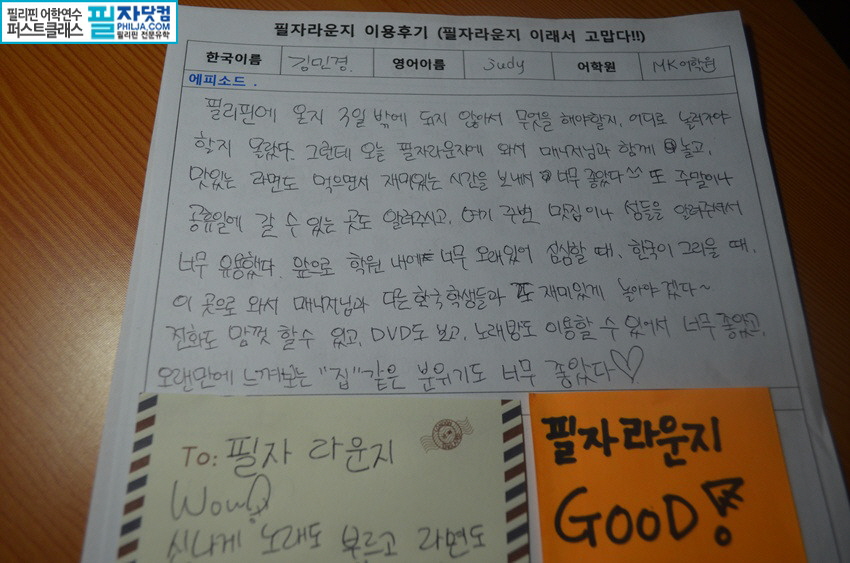 필리핀 어학연수
퍼스트클래스
필자닷컴
PHILJA.COM
필리핀 전문유학
필자라운지 이용후기 (필자라운지 이래서 고맙다!!)
한국이름 김민경. 영어이름 Judy 어학원 MK어학원
에피소드.
필리핀에 온지 3일 밖에 되지 않아서 무엇을 해야할지, 어디로 놀러가야
할지 몰랐다. 그런데 오늘 필자라운지에 와서 매니저님과 함께 놀고,
맛있는 라면도 먹으면서 재미있는 시간을 보내서 너무 좋았다 또 주말이나
공휴일에 갈 수 있는 곳도 알려주시고, 여기 주변 맛집이나 성들을 알려주셔서
너무 유용했다. 앞으로 학원 내에 너무 오래있어 심심할 때, 한국이 그리울 때,
이 곳으로 와서 매니저님과 다른 한국학생들과 또 재미있게 놀아야겠다~
전화도 맘껏 할 수 있고, DVD도 보고, 노래방도 이용할 수 있어서 너무 좋았고,
오랜만에 느껴보는 "집"같은 분위기도 너무 좋았다♡
To: 필자 라운지
Wow!
신나게 노래도 부르고 라면도
필자라운지
GOOD!